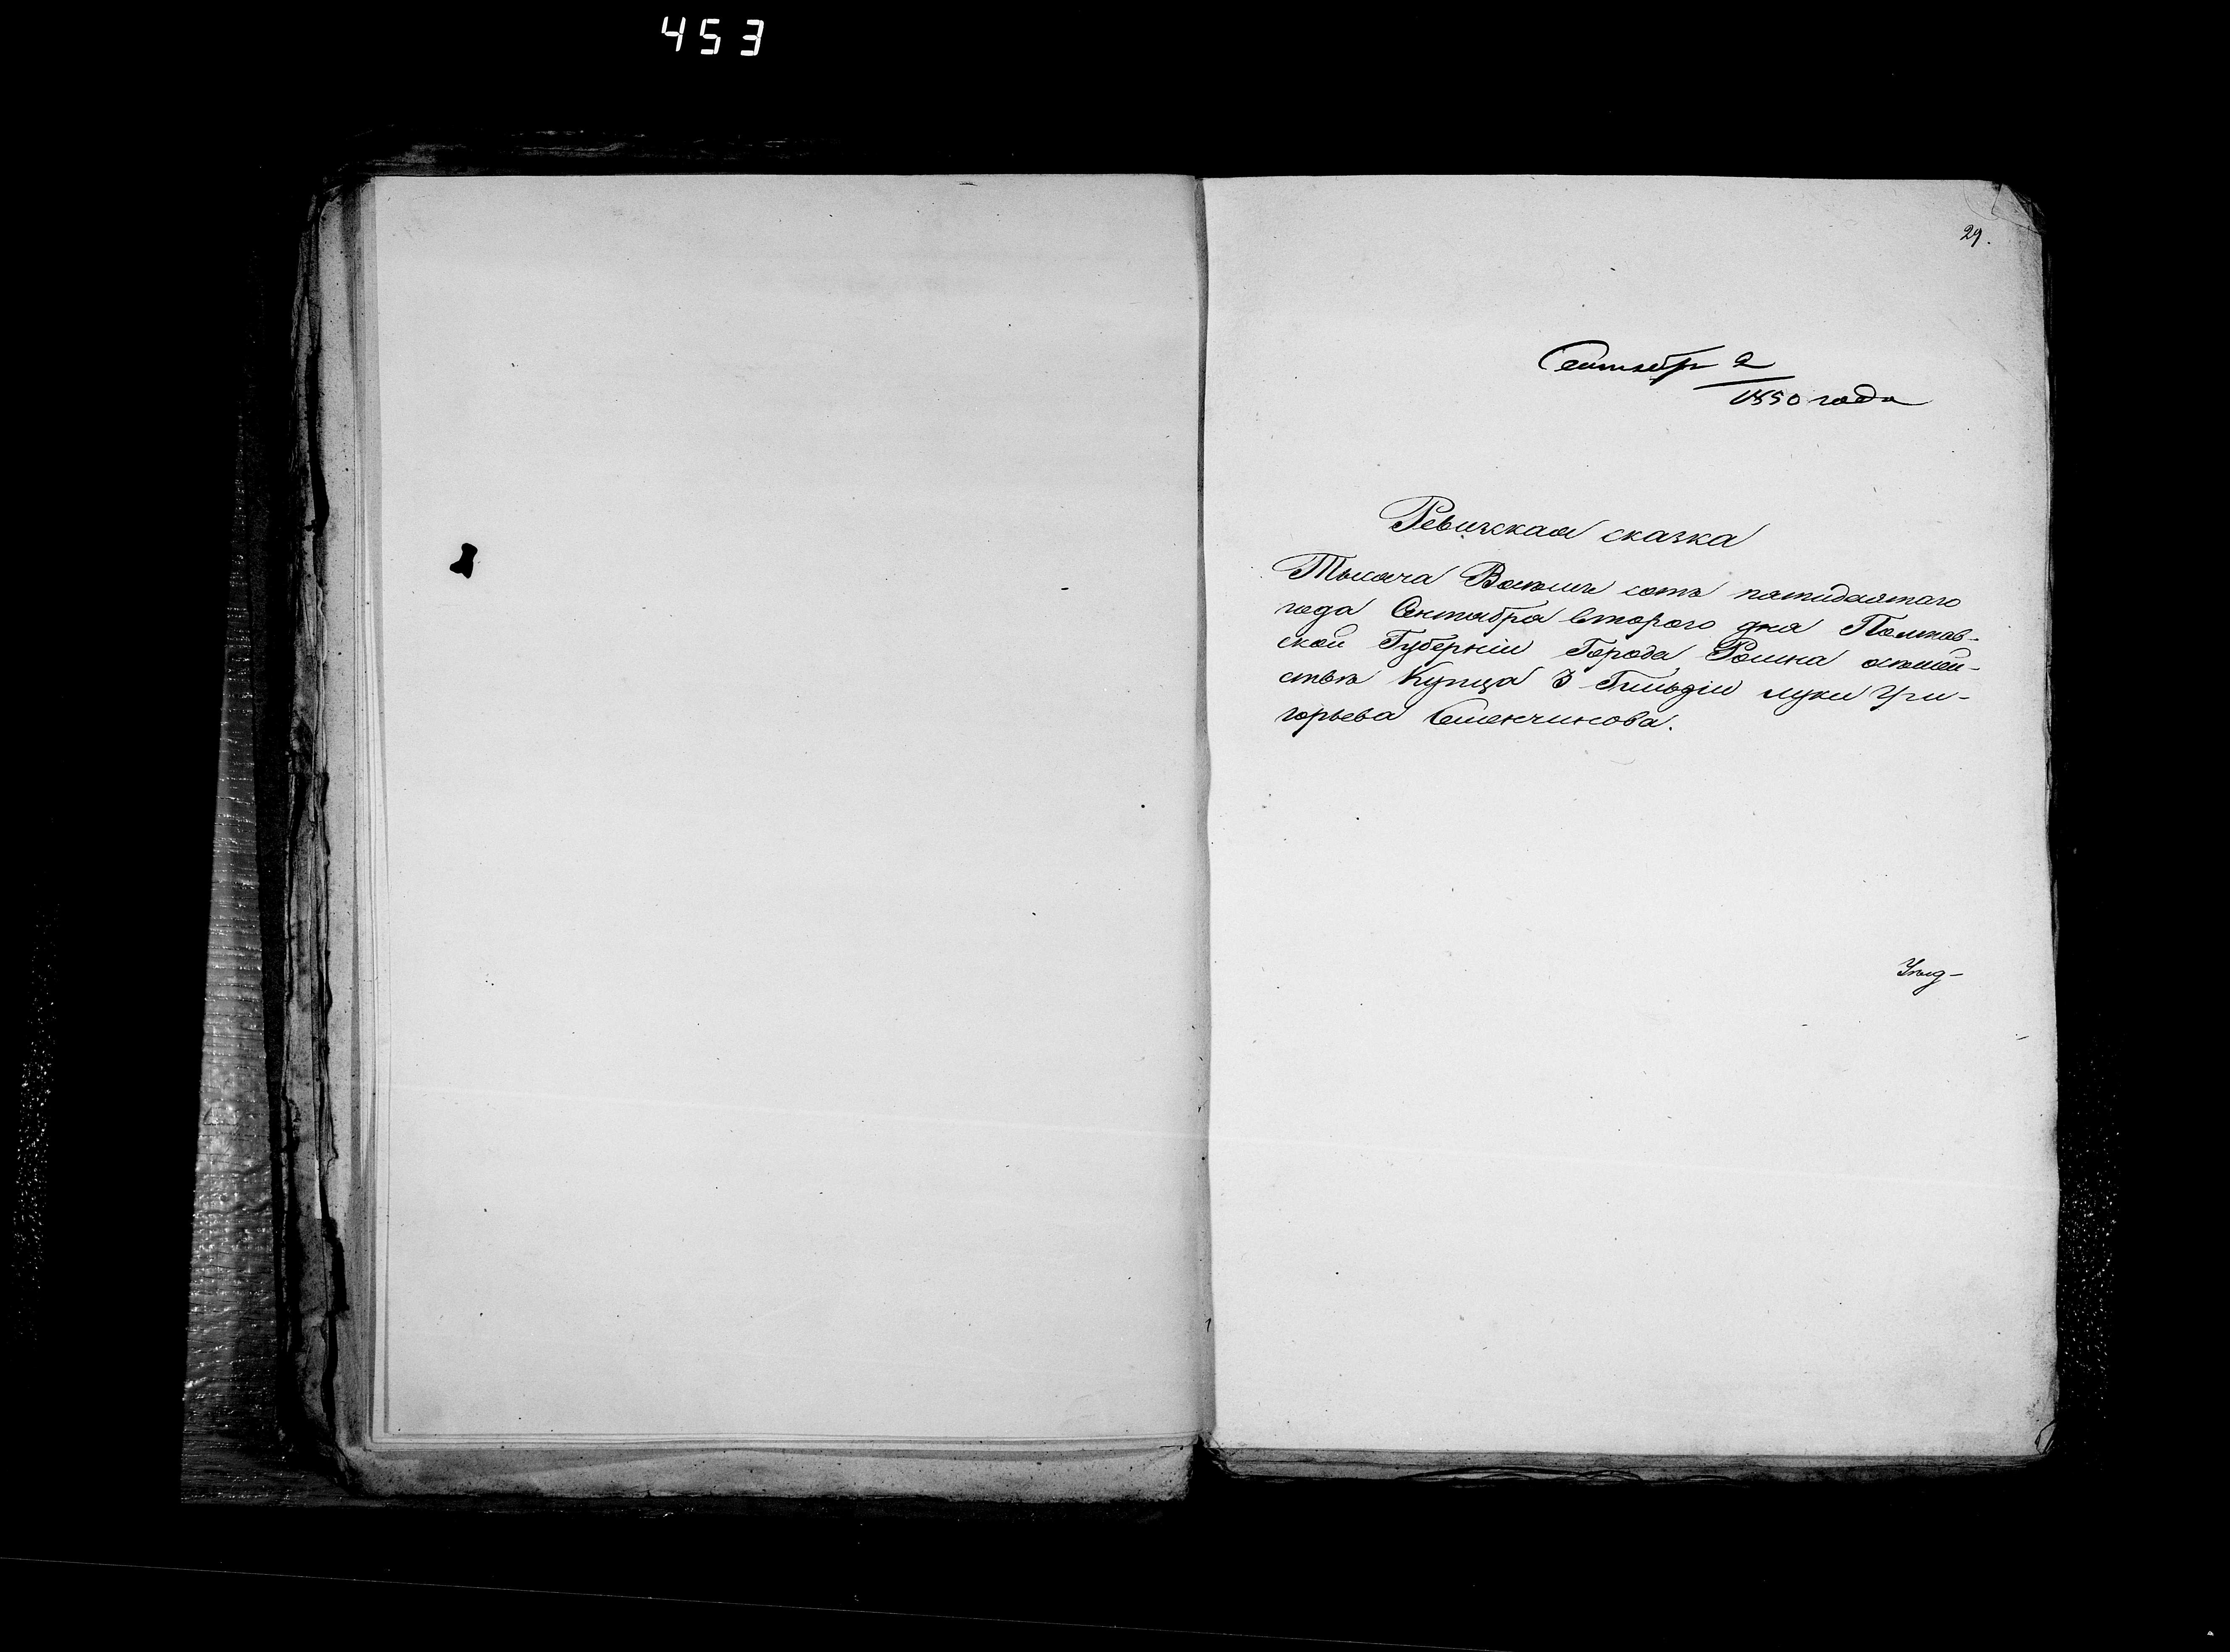 453
29.
Сентябр 2
1850 года
Ревизская сказка
Тысяча Восемь сотъ пятидесятаго
года Сентября второго дня Полтав-
ской Губерніи Города Ромна осемей-
ствѣ Купца 3 Гильдіи Луки Гри-
горьева Семенчинова.